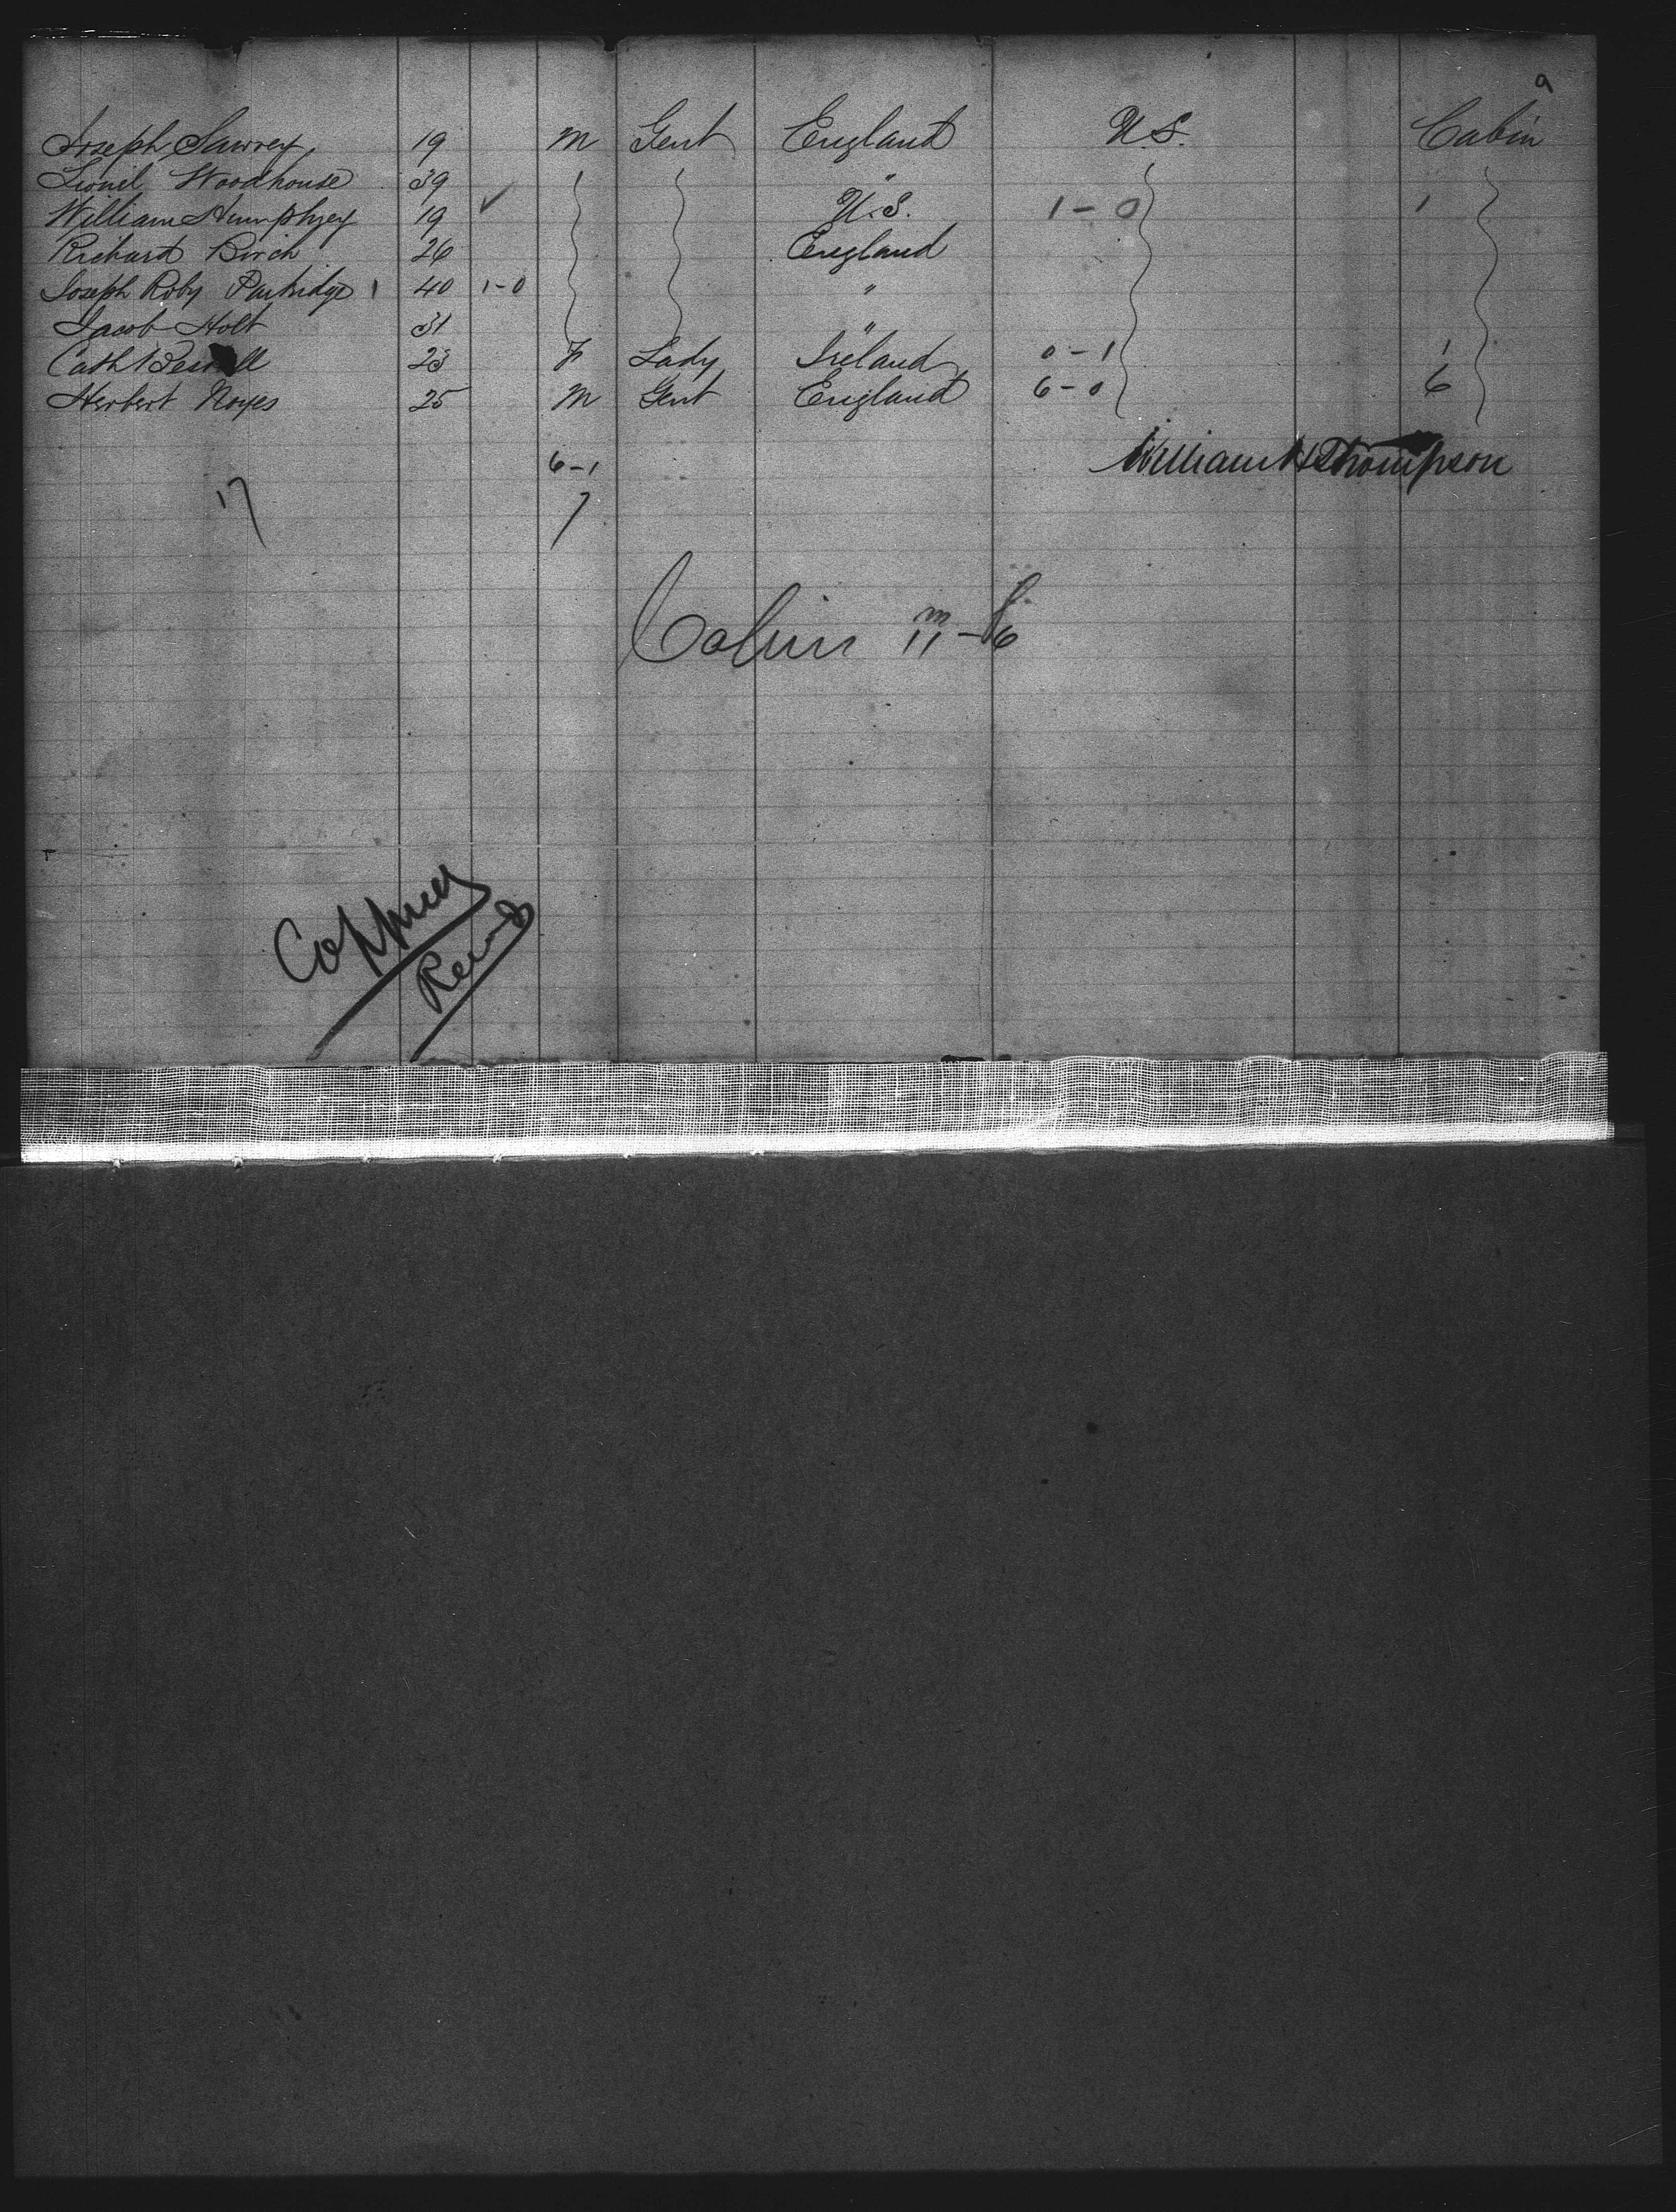 9
Joseph Sawrey 19 M Gent England U.S. Cabin
Lionel Woodhouse 39 "
William Humphrey 19 ✓ U.S. 1-0 1
Richard Birch 26 England
Joseph Roby Partridge 1 40 1-0 "
Jacob Holt 31 "
Cath 23 F Lady Ireland 0-1 1
Herbert Noyes 25 M Gent England 6-0 6
6-1 William H Thompson
17 7
m f
Cabin 11-6